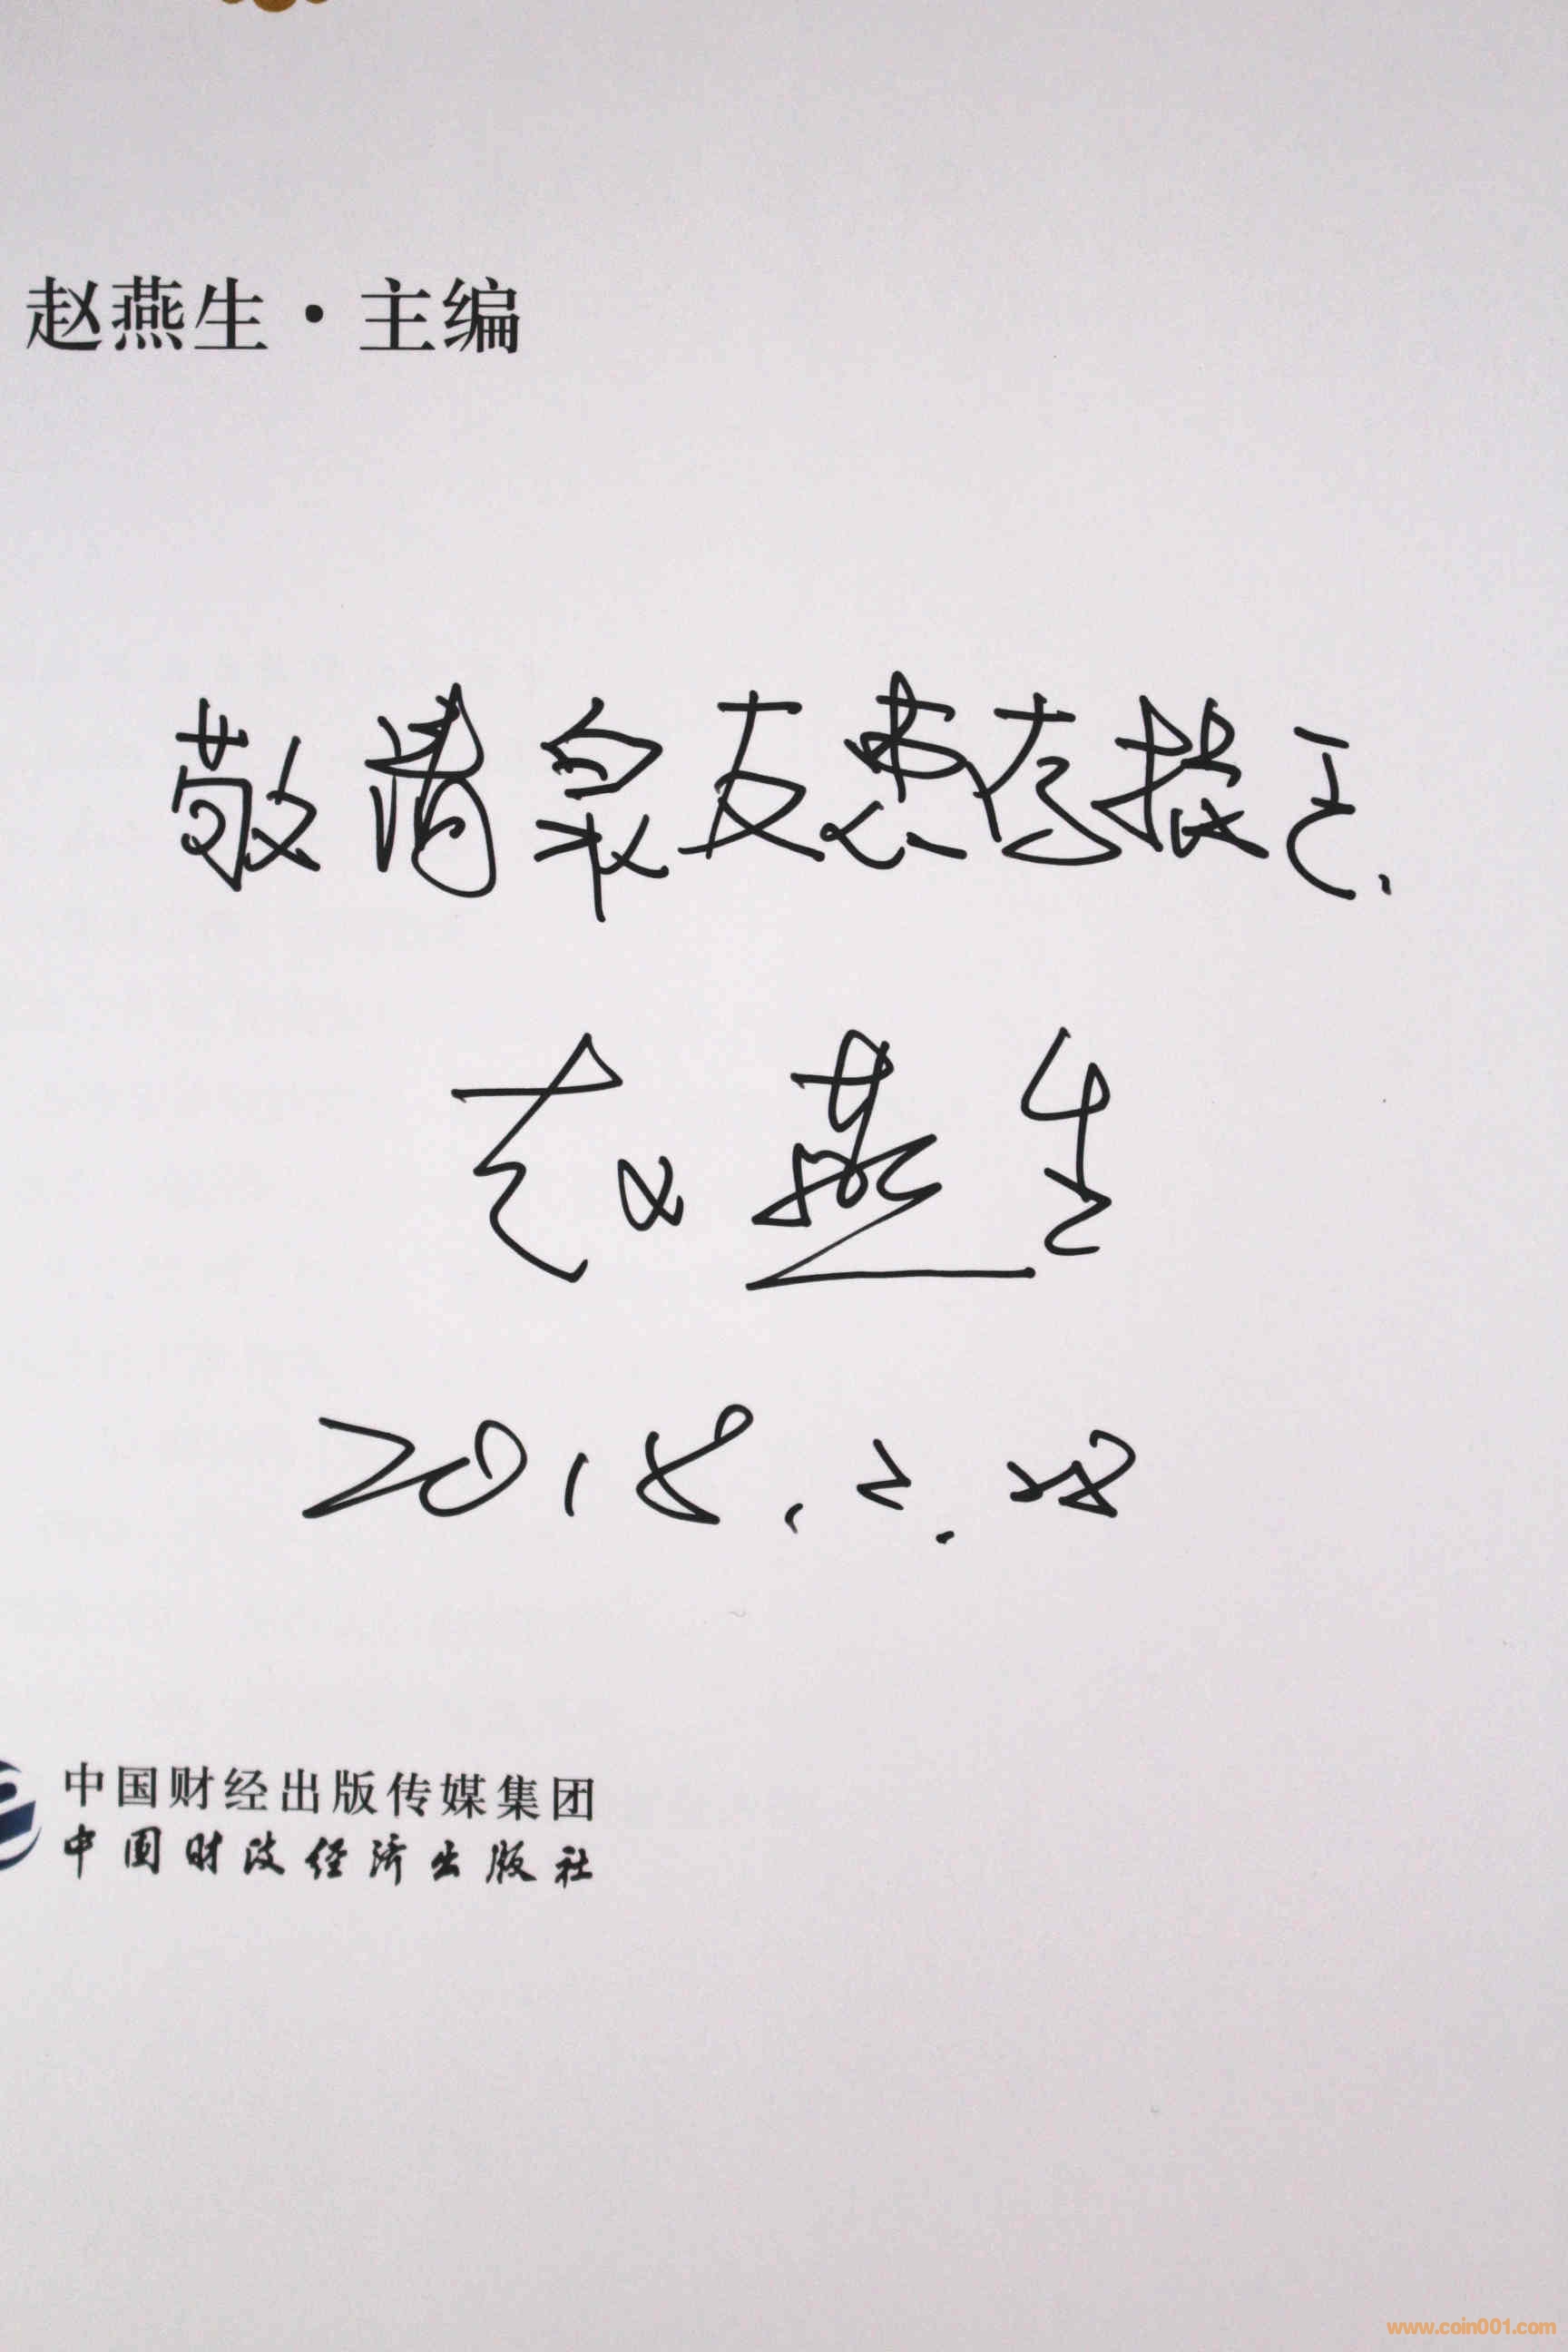 赵燕生·主编
敬请泉友惠存指正.
赵燕生
2018.2.28
中国财经出版传媒集团
中国财政经济出版社
www.coin001.com